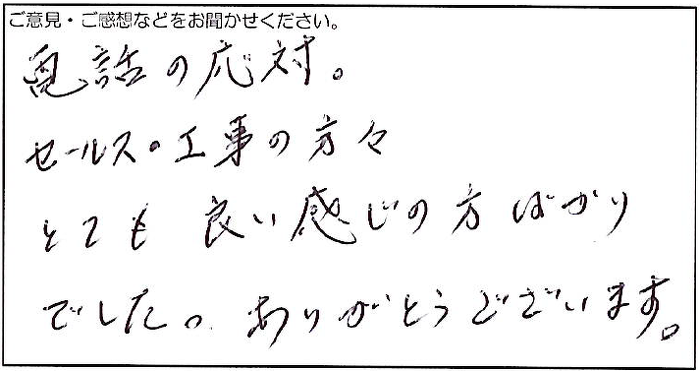 ご意見・ご感想などをお聞かせください。
電話の応対。
セールス・工事の方々
とても良い感じの方ばかり
でした。ありがとうございます。